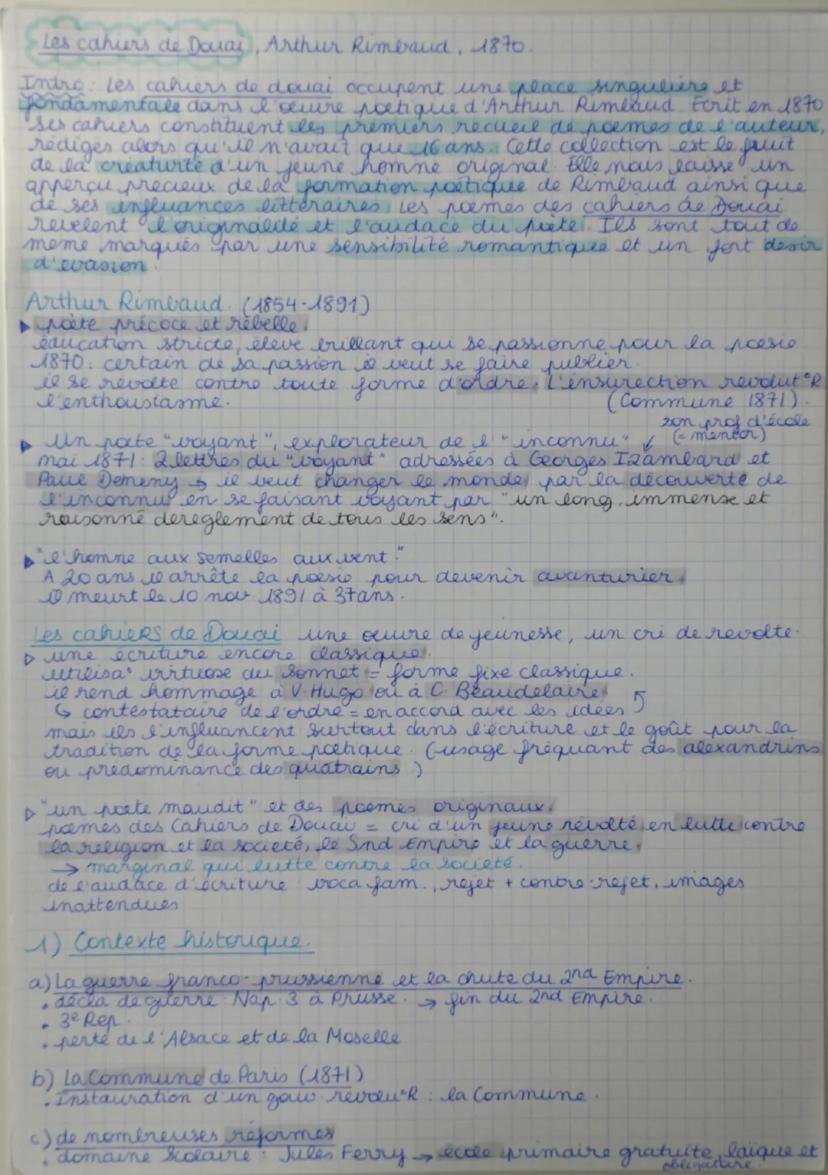 Les cahiers de Douai, Arthur Rimbaud, 1870.
Intro : Les cahiers de douai occupent une place singulière et
fondamentale dans l'œuvre poétique d'Arthur Rimbaud. Ecrit en 1870
ses cahiers constituent les premiers recueil de poèmes de l'auteur,
rédigés alors qu'il n'avait que 16 ans. Cette collection est le fruit
de la créaturté d'un jeune homne original. Elle nous laisse un
apperçu précieux de la formation poétique de Rimbaud ainsi que
de ses influances littéraires. Les poèmes des cahiers de Douai
revelent l'originaldé et l'audace du poète. Ils sont tout de
meme marqués par une sensibilité romantique et un fort desir
d'evasion.
Arthur Rimbaud. (1854-1891)
▶ poète précoce et rebelle.
éducation stricte, élève brillant qui se passionne pour la poesie
1870 : certain de sa passion il veut se faire publier.
il se révolte contre toute forme d'ordre. L'insurection revolut°R
l'enthousiasme. (Commune 1871).
▶ Un poète "voyant", explorateur de l'"inconnu" ↙ son prof d'école
(= mentor)
mai 1871 : 2 lettres du "voyant" adressées à Georges Izambard et
Paul Demeny → il veut changer le monde par la découverte de
l'inconnu en se faisant voyant par "un long, immense et
raisonné dereglement de tous les sens".
▶ "l'homne aux semelles aux vent."
A 20 ans il arrête la poésie pour devenir avanturier.
il meurt le 10 nov 1891 à 37 ans.
Les cahiers de Douai une œuvre de jeunesse, un cri de revolte.
▷ une écriture encore classique.
utilisa° virtuose du sonnet = forme fixe classique.
il rend hommage à V. Hugo ou à C. Beaudelaire
↳ contestataire de l'ordre = en accord avec les idées ↰
mais ils l'influancent surtout dans l'écriture et le goût pour la
tradition de la forme poétique. (usage fréquant des alexandrins
ou prédominance des quatrains.)
▷ "un poète maudit" et des poèmes originaux.
poèmes des Cahiers de Douai = cri d'un jeune révolté en lutte contre
la religion et la société, le Snd Empire et la guerre.
→ marginal qui lutte contre la société.
de l'audace d'écriture : voca fam., rejet + contre-rejet, images
inattendues
1) Contexte historique.
a) La guerre franco-prussienne et la chute du 2nd Empire.
• décla de guerre Nap. 3 à Prusse. → fin du 2nd Empire.
• 3e Rep.
• perte de l'Alsace et de la Moselle
b) La Commune de Paris (1871)
• Instauration d'un gouv. révolu°R : la Commune.
c) de nombreuses réformes
• domaine scolaire : Jules Ferry → école primaire gratuite, laïque et
obligatoire.